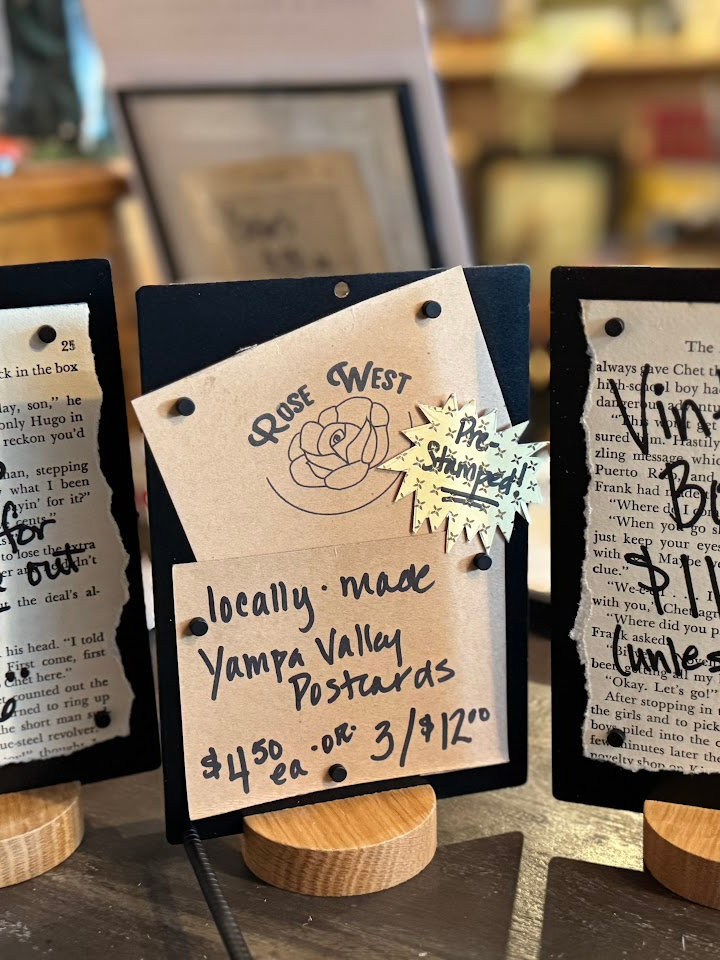 ROSE WEST
Pre-
Stamped!
locally · made
Yampa Valley
Postcards
$4.50 ea · OR · 3/$12.00
25
ck in the box
lay, son," he
only Hugo in
reckon you'd
han, stepping
what I been
yin' for it?"
cents."
to lose the extra
the deal's al-
his head. "I told
First come, first
Chet here."
counted out the
rned to ring up
the short man
ue-steel revolver.
for
out
The
always gave Chet
high-school boy ha
sured
Hastily
zling message, whic
Puerto
and
Frank had made
"Where do I
"When you go
just keep your eyes
with
clue."
with you,
Chet
"Where did you p
Frank asked.
been getting all my
"Okay. Let's go!"
After stopping in
the girls and to pick
boys piled into the
few minutes later the
novelty shop on
$11
(unles